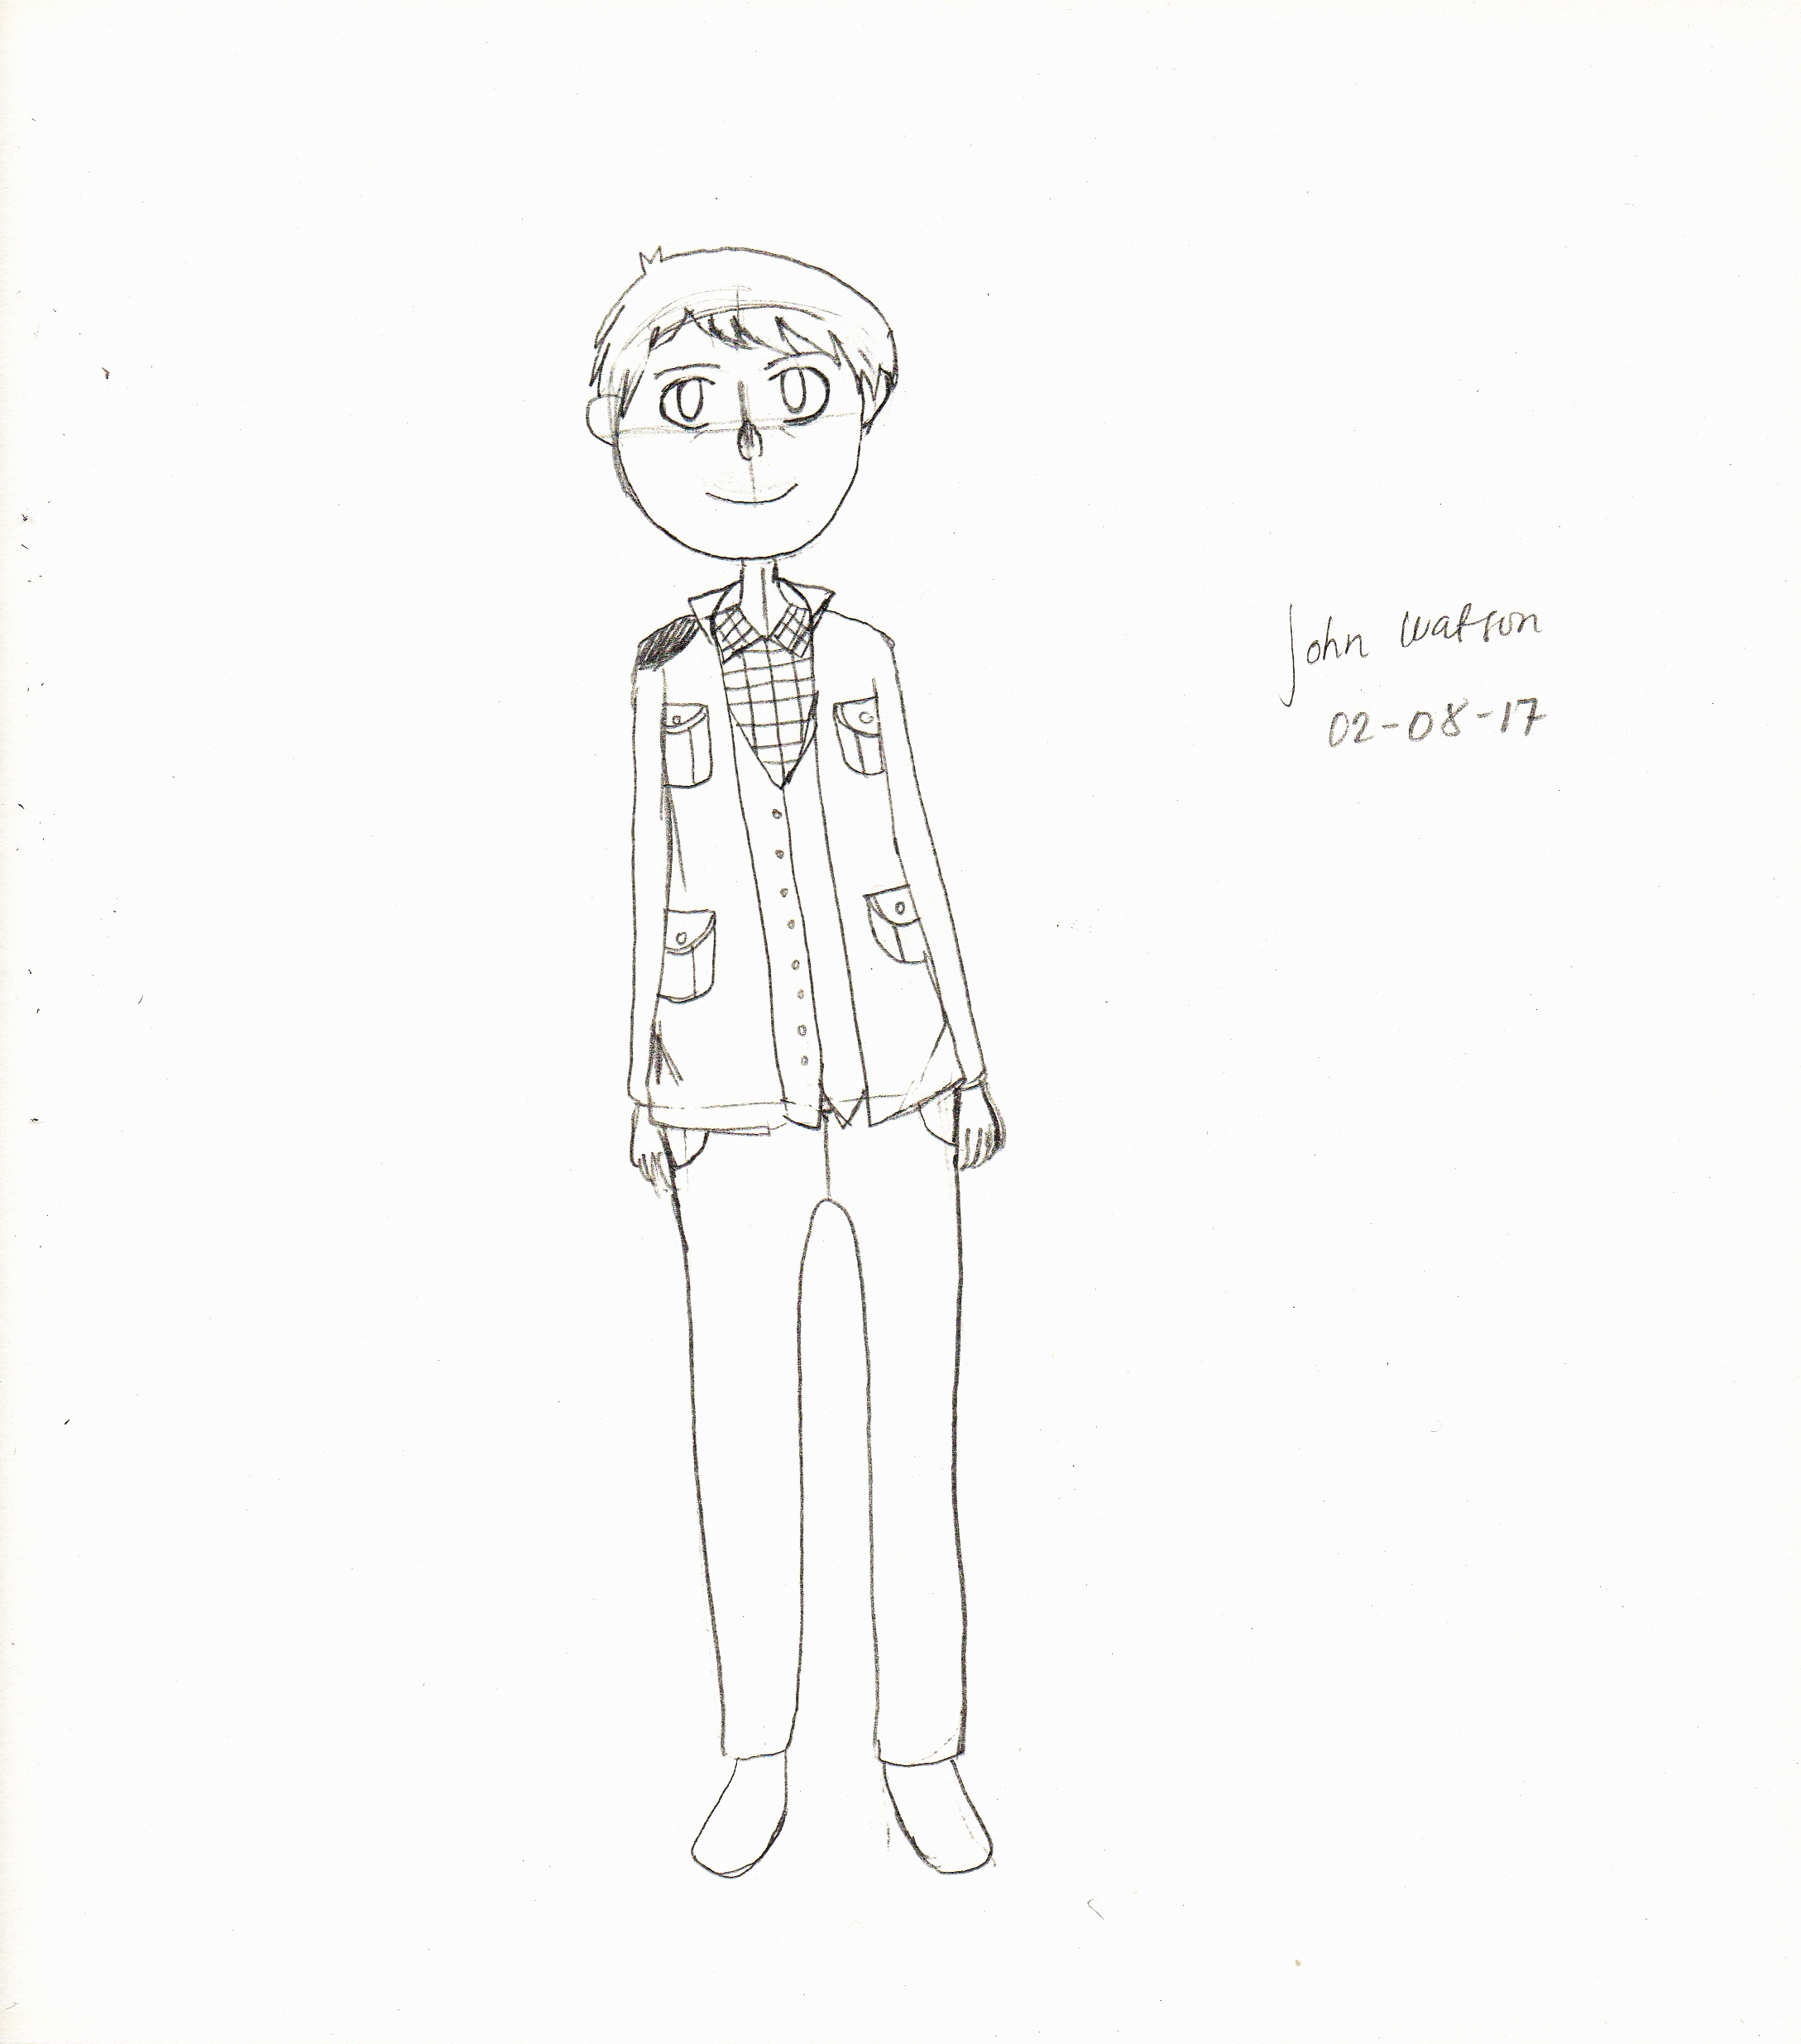 John Watson
02-08-17